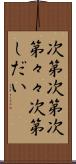 次第次第次
第々々次第
しだい